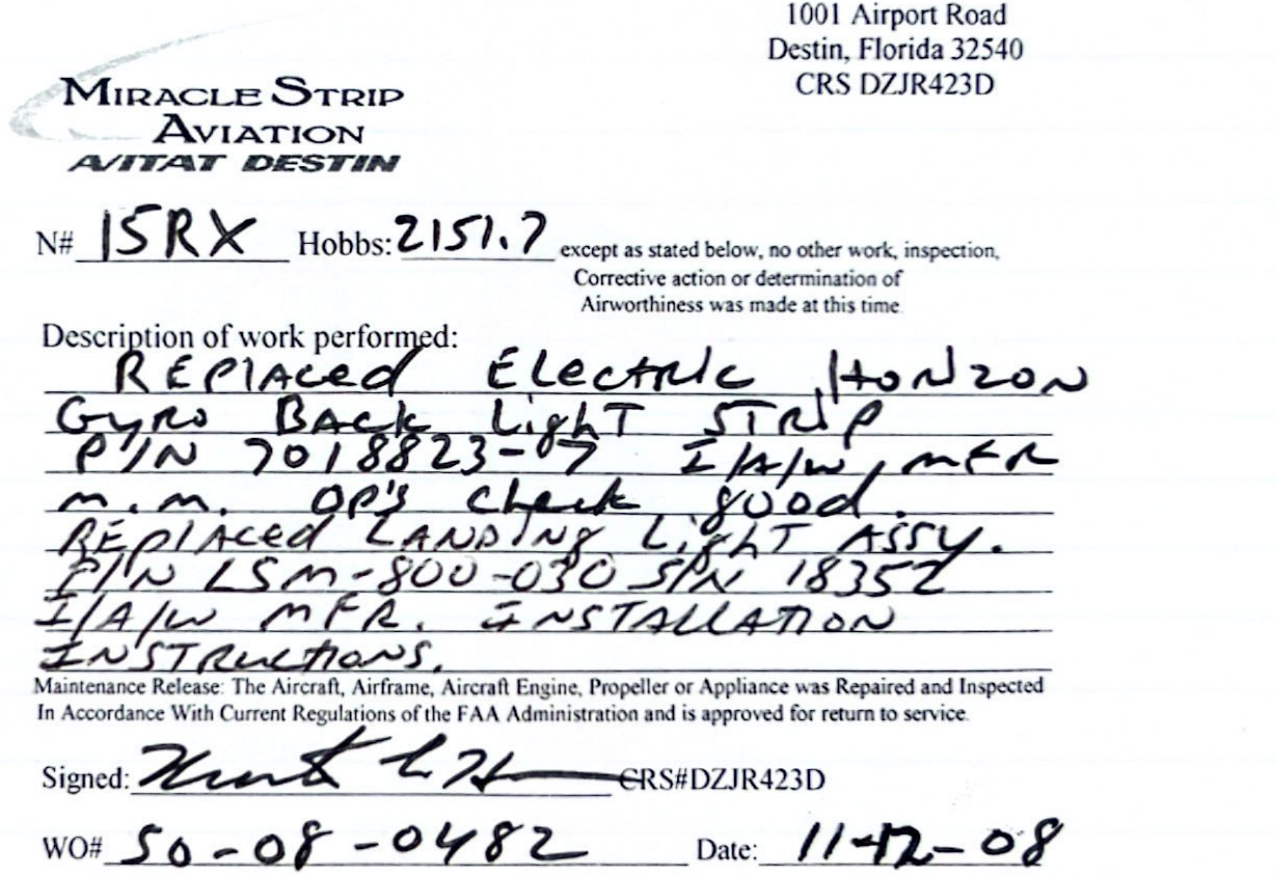 1001 Airport Road
Destin, Florida 32540
CRS DZJR423D
MIRACLE STRIP
AVIATION
AVITAT DESTIN
N# 15RX Hobbs: 2151.7 except as stated below, no other work, inspection,
Corrective action or determination of
Airworthiness was made at this time
Description of work performed:
REPlAced Electric HORIZON
Gyro BACK LighT STRIP
P/N 7018823-07 I/A/W, MFR
M.M. OP'S check good.
REplAced LANDINg LighT ASSY.
P/N LSM-800-030 S/N 18352
I/A/W MFR. INSTALLATION
INSTRUCTIONS.
Maintenance Release: The Aircraft, Airframe, Aircraft Engine, Propeller or Appliance was Repaired and Inspected
In Accordance With Current Regulations of the FAA Administration and is approved for return to service.
Signed: CRS#DZJR423D
WO# 50-08-0482 Date: 11-12-08